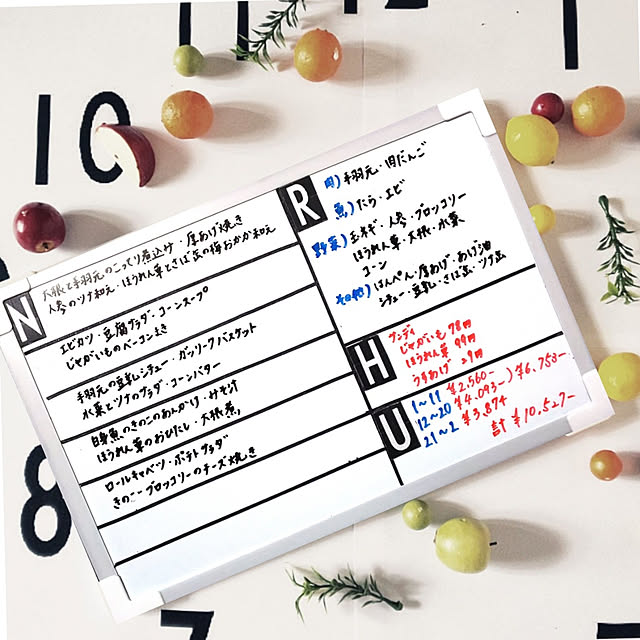 10
1
8
7
N
大根と手羽元のこってり煮込み・厚あげ焼き
人参のツナ和え・ほうれん草とさば缶の梅おかか和え
エビカツ・豆腐サラダ・コーンスープ
じゃがいものベーコン巻き
手羽元の豆乳シチュー・ガーリックバスケット
水菜とツナのサラダ・コーンバター
白身魚のきのこあんかけ・みそ汁
ほうれん草のおひたし・大根煮
ロールキャベツ・ポテトサラダ
きのことブロッコリーのチーズ焼き
R
肉) 手羽元・肉だんご
魚) たら・エビ
野菜) 玉ネギ・人参・ブロッコリー
ほうれん草・大根・水菜
コーン
その他) はんぺん・厚あげ・あげ・油
シチュー・豆乳・さば缶・ツナ缶
H
サンディ
じゃがいも 78円
ほうれん草 99円
うすあげ 29円
U
1〜11 ¥2,560-
12〜20 ¥4,093-) ¥6,753-
21〜2 ¥3,874
計 ¥10,527-